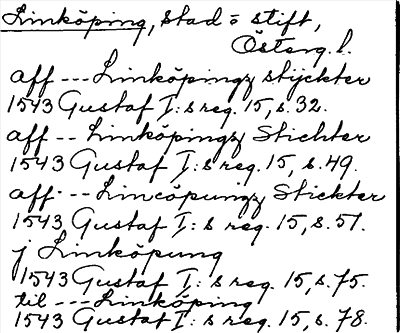 Linköping, stad o stift,
Österg. l.
aff --- Linköpingz stijckter
1543 Gustaf I:s reg. 15, s. 32.
aff -- Linköpingz Stichter
1543 Gustaf I:s reg. 15, s. 49.
aff --- Lincöpungz Stickter
1543 Gustaf I:s reg. 15, s. 51.
j Linköpung
1543 Gustaf I:s reg. 15, s. 75.
til --- Linköping
1543 Gustaf I:s reg. 15, s. 78.